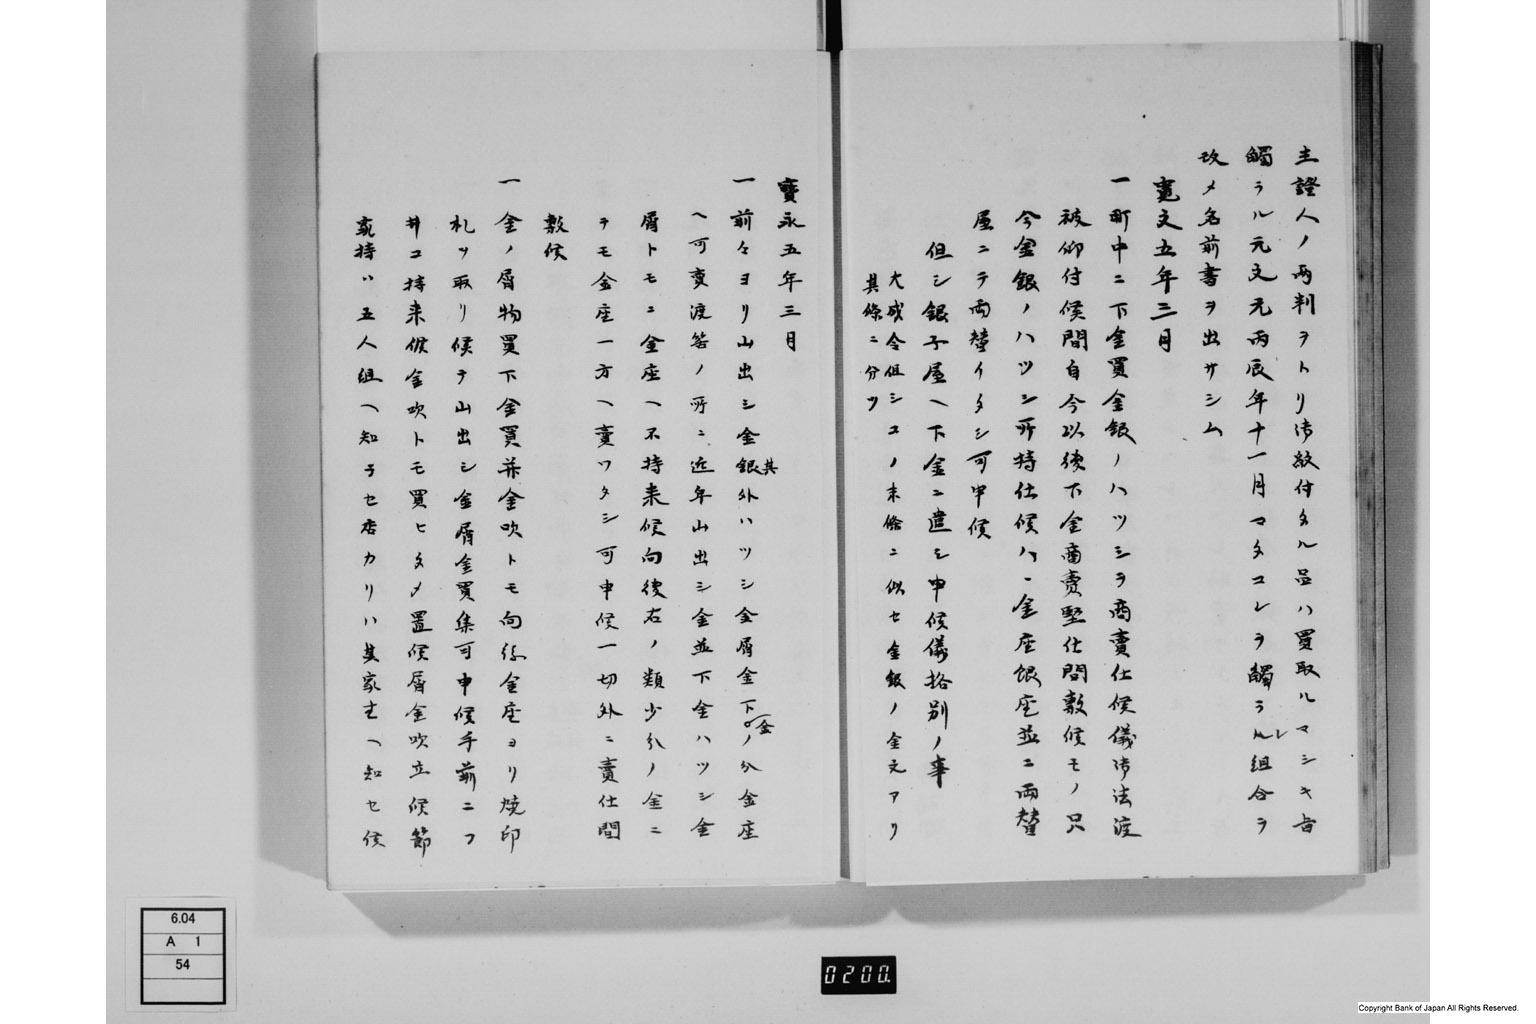 主證人ノ両判ヲトリ御紋付タル品ハ買取ルマシキ旨
觸ラル元文元丙辰年十一月マタコレヲ觸ラルレ組合ヲ
改メ名前書ヲ出サシム
寛文五年三月
一町中ニ下金買金銀ノハツシヲ商賣仕候儀御法度
被仰付候間自今以後下金商賣堅仕間敷候モノ只
今金銀ノハツシ所持仕候ハヽ金座銀座並ニ両替
屋ニテ両替イタシ可申候
但シ銀子屋ヘ下金ニ遣シ申候儀格別ノ事
大成令但シコノ末條ニ似セ金銀ノ全文アリ
其條ニ分ツ
寶永五年三月
一前々ヨリ山出シ金銀其外ハツシ金屑金下金ノ分金座
ヘ可賣渡筈ノ所ニ近年山出シ金並下金ハツシ金
屑トモニ金座ヘ不持来候向後右ノ類少分ノ金ニ
テモ金座一方ヘ賣ワタシ可申候一切外ニ賣仕間
敷候
一金ノ屑物買下金買并金吹トモ向後金座ヨリ焼印
札ヲ取リ候テ山出シ金屑金買集可申候手前ニフ
キコ持来候金吹トモ買ヒタメ置候屑金吹立候節
家持ハ五人組ヘ知ラセ店カリハ其家主ヘ知セ候
6.04
A 1
54
0200.
Copyright Bank of Japan All Rights Reserved.